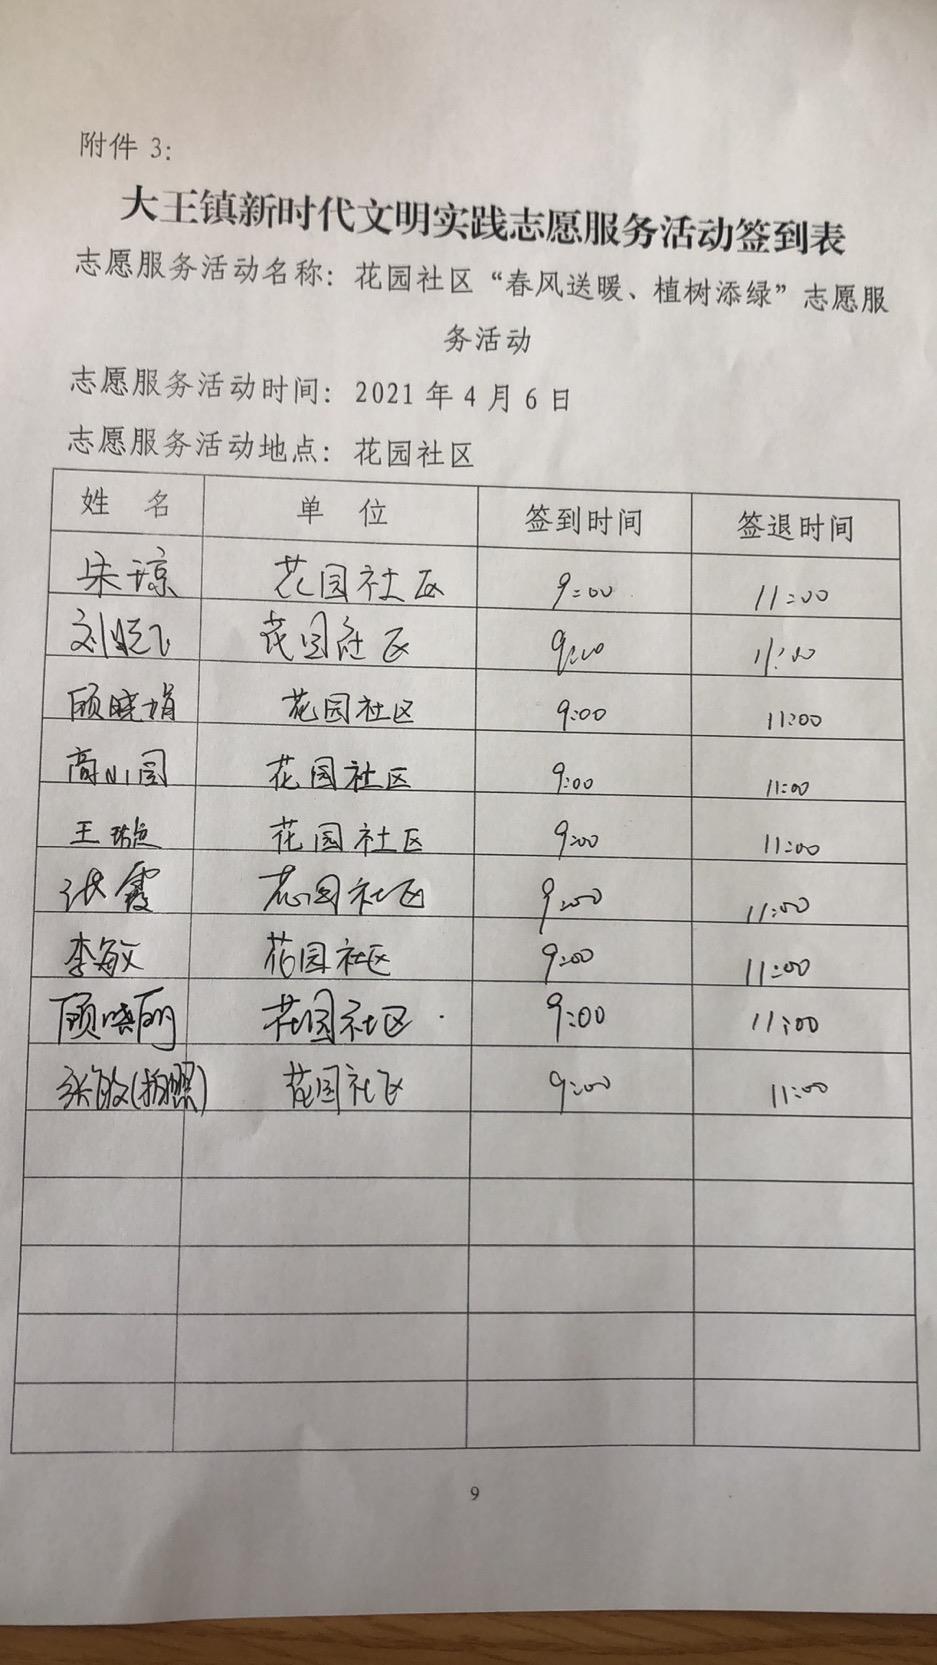 附件 3:
大王镇新时代文明实践志愿服务活动签到表
志愿服务活动名称: 花园社区“春风送暖、植树添绿”志愿服
务活动
志愿服务活动时间: 2021 年 4 月 6 日
志愿服务活动地点: 花园社区
姓 名 单 位 签到时间 签退时间
朱琼 花园社区 9:00 11:00
刘晓飞 花园社区 9:00 11:00
顾晓娟 花园社区 9:00 11:00
高小园 花园社区 9:00 11:00
王 花园社区 9:00 11:00
张霞 花园社区 9:00 11:00
李敏 花园社区 9:00 11:00
顾晓丽 花园社区 9:00 11:00
张敏(拍照) 花园社区 9:00 11:00
9